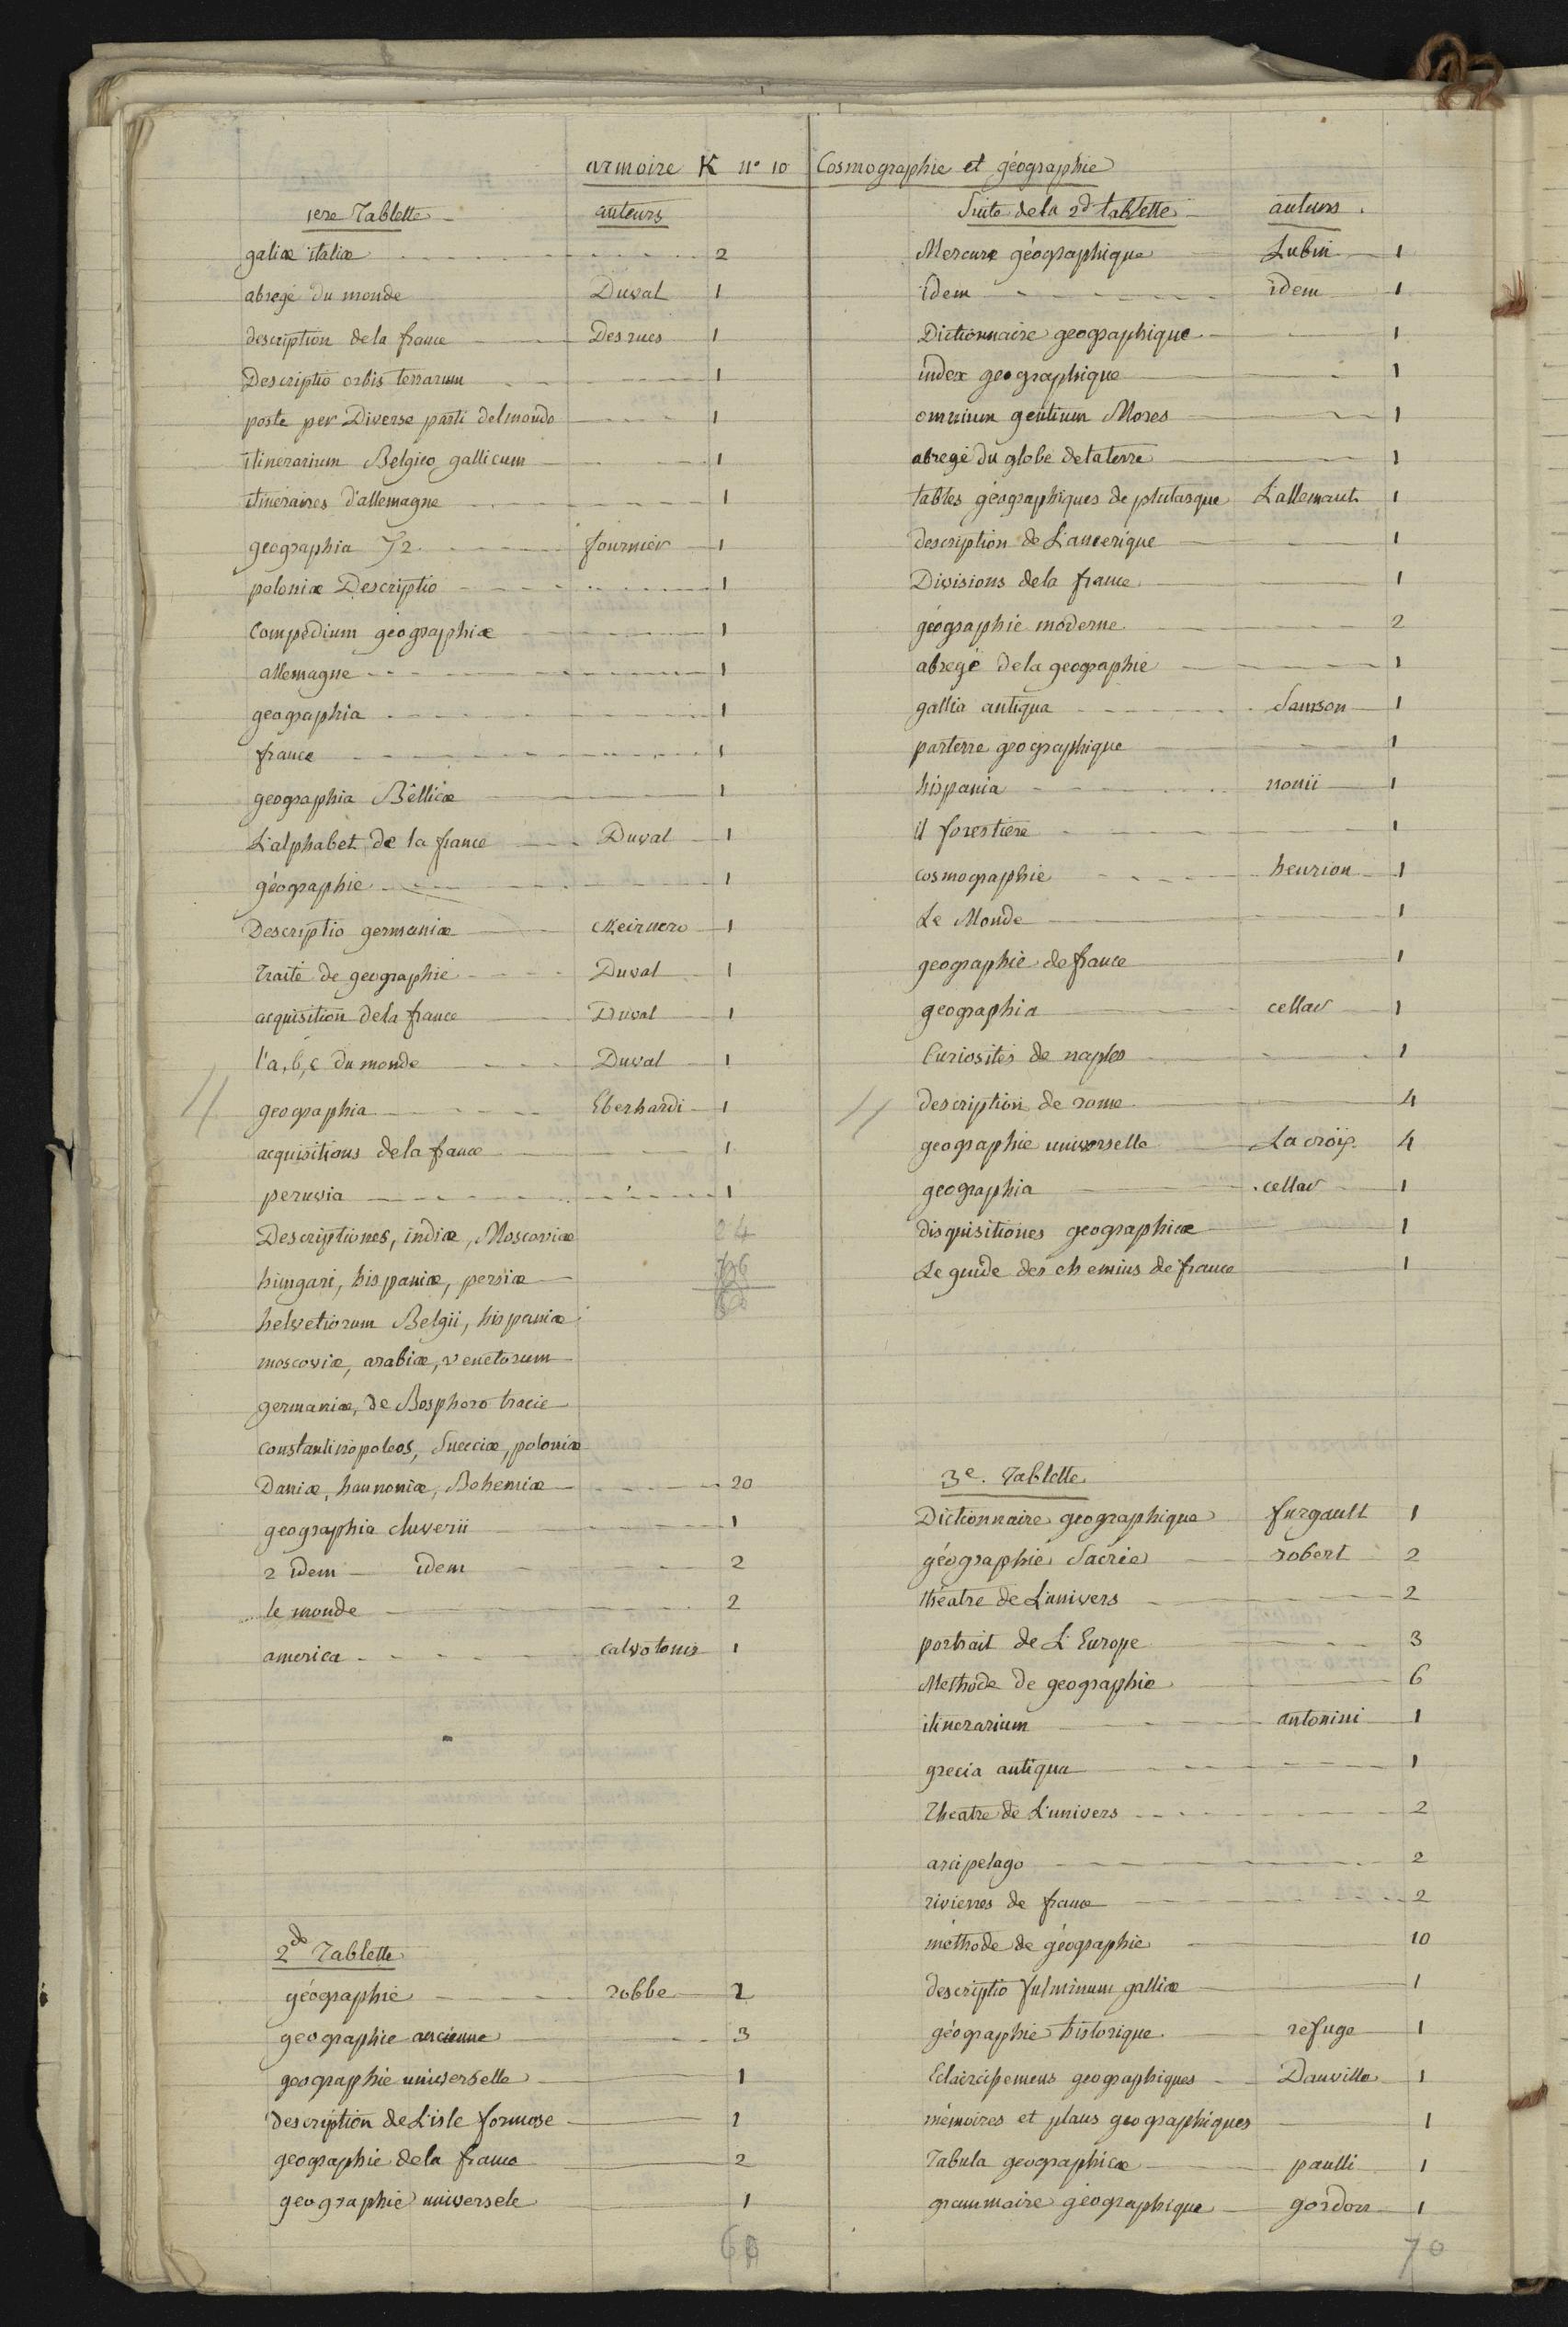 armoire K nº 10 Cosmographie et géographie
1ere Tablette auteurs
galiæ italiæ 2
abregé du monde Duval 1
description de la france Desrues 1
Descriptio orbis terrarum 1
poste per Diverse parti del mondo 1
itinerarium Belgico gallicum 1
itineraires d'allemagne 1
geographia fournier 1
poloniæ Descriptio 1
Compedium géographiæ 1
allemagne 1
geographia 1
france 1
geographia Bellicæ 1
L'alphabet de la france Duval 1
géographie 1
Descriptio germaniæ 1
Traité de geographie Duval 1
acquisition de la france Duval 1
l'a, b, c du monde Duval 1
geographia Eberhardi 1
acquisitions de la france 1
peruvia 1
Descriptiones, indiæ, Moscoviæ
hungari, hispaniæ, persiæ
helvetiorum Belgii, hispaniæ
moscoviæ, arabiæ, venetorum
germaniæ, de Bosphoro tracie
constantinopoleos, Sueciæ, poloniæ
Daniæ, hannoniæ, Bohemiæ 20
geographia cluverii 1
2 idem idem 2
le monde 2
america calvotonis 1
2d Tablette
géographie robbe 2
geographie ancienne 3
geographie universelle 1
description de L'isle formose 1
geographie de la france 2
geographie universele 1
Suite de la 2d tablette auteurs
Mercure géographique Lubin 1
idem idem 1
Dictionnaire geographique 1
index geographique 1
omnium gentium Mores 1
abregé du globe de la terre 1
tables géographiques de plutarque L'allemant 1
description de L'amerique 1
Divisions de la france 1
géographie moderne 2
abregé de la geographie 1
gallia antiqua Samson 1
parterre geographique 1
hispania nonii 1
il forestiere 1
cosmographie henrion 1
Le Monde 1
geographie de france 1
geographia cellar 1
Curiosités de naples 1
description de rome 4
geographie universelle La croix 4
geographia cellar 1
disquisitiones geographicæ 1
Le guide des chemins de france 1
3e. Tablette
Dictionnaire geographique furgault 1
géographie Sacrée robert 2
théatre de L'univers 2
portrait de L'Europe 3
Methode de geographie 6
itinerarium antonini 1
grecia antiqua 1
Theatre de L'univers 2
arcipelago 2
rivierres de france 2
méthode de géographie 10
descriptio fulminum galliæ 1
géographie historique refuge 1
Eclaircissemens geographiques Danville 1
mémoires et plans geographiques 1
Tabula geographicæ paulli 1
grammaire géographique gordon 1
70